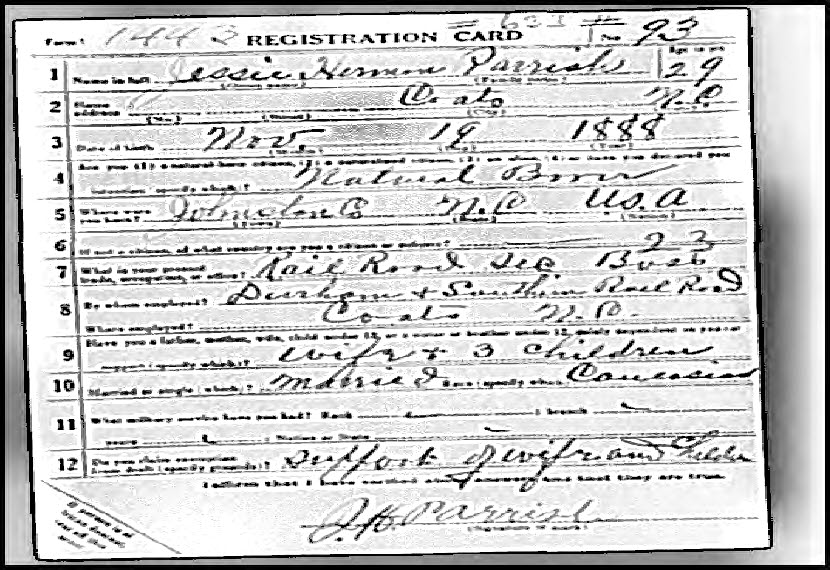 = 631 #
Form 1 1443 REGISTRATION CARD No 93
1 Name in full Jessie Hermon Parrish Age in yrs 29
(Given name) (Family name)
2 Home address Coats N.C.
(No.) (Street) (City)
3 Date of birth Nov. 19 1888
(Month) (Day) (Year)
Are you (1) a natural-born citizen, (2) a naturalized citizen, (3) an alien, (4) or have you declared your
4 intention (specify which)? Natural Born
5 Where were you born? Johnston Co N.C U.S.A
(Town) (State) (Nation)
6 If not a citizen, of what country are you a citizen or subject?
7 What is your present trade, occupation, or office? Rail Road Sec Boss
8 By whom employed? Durham & Southern Rail Road
Where employed? Coats N.C.
Have you a father, mother, wife, child under 12, or a sister or brother under 12, solely dependent on you for
9 support (specify which)? Wife & 3 Children
10 Married or single (which)? Married Race (specify which)? Caucasian
11 What military service have you had? Rank ; branch
years ; Nation or State
12 Do you claim exemption from draft (specify grounds)? Support of wife and Childrn
I affirm that I have verified above answers and that they are true.
J.H. Parrish